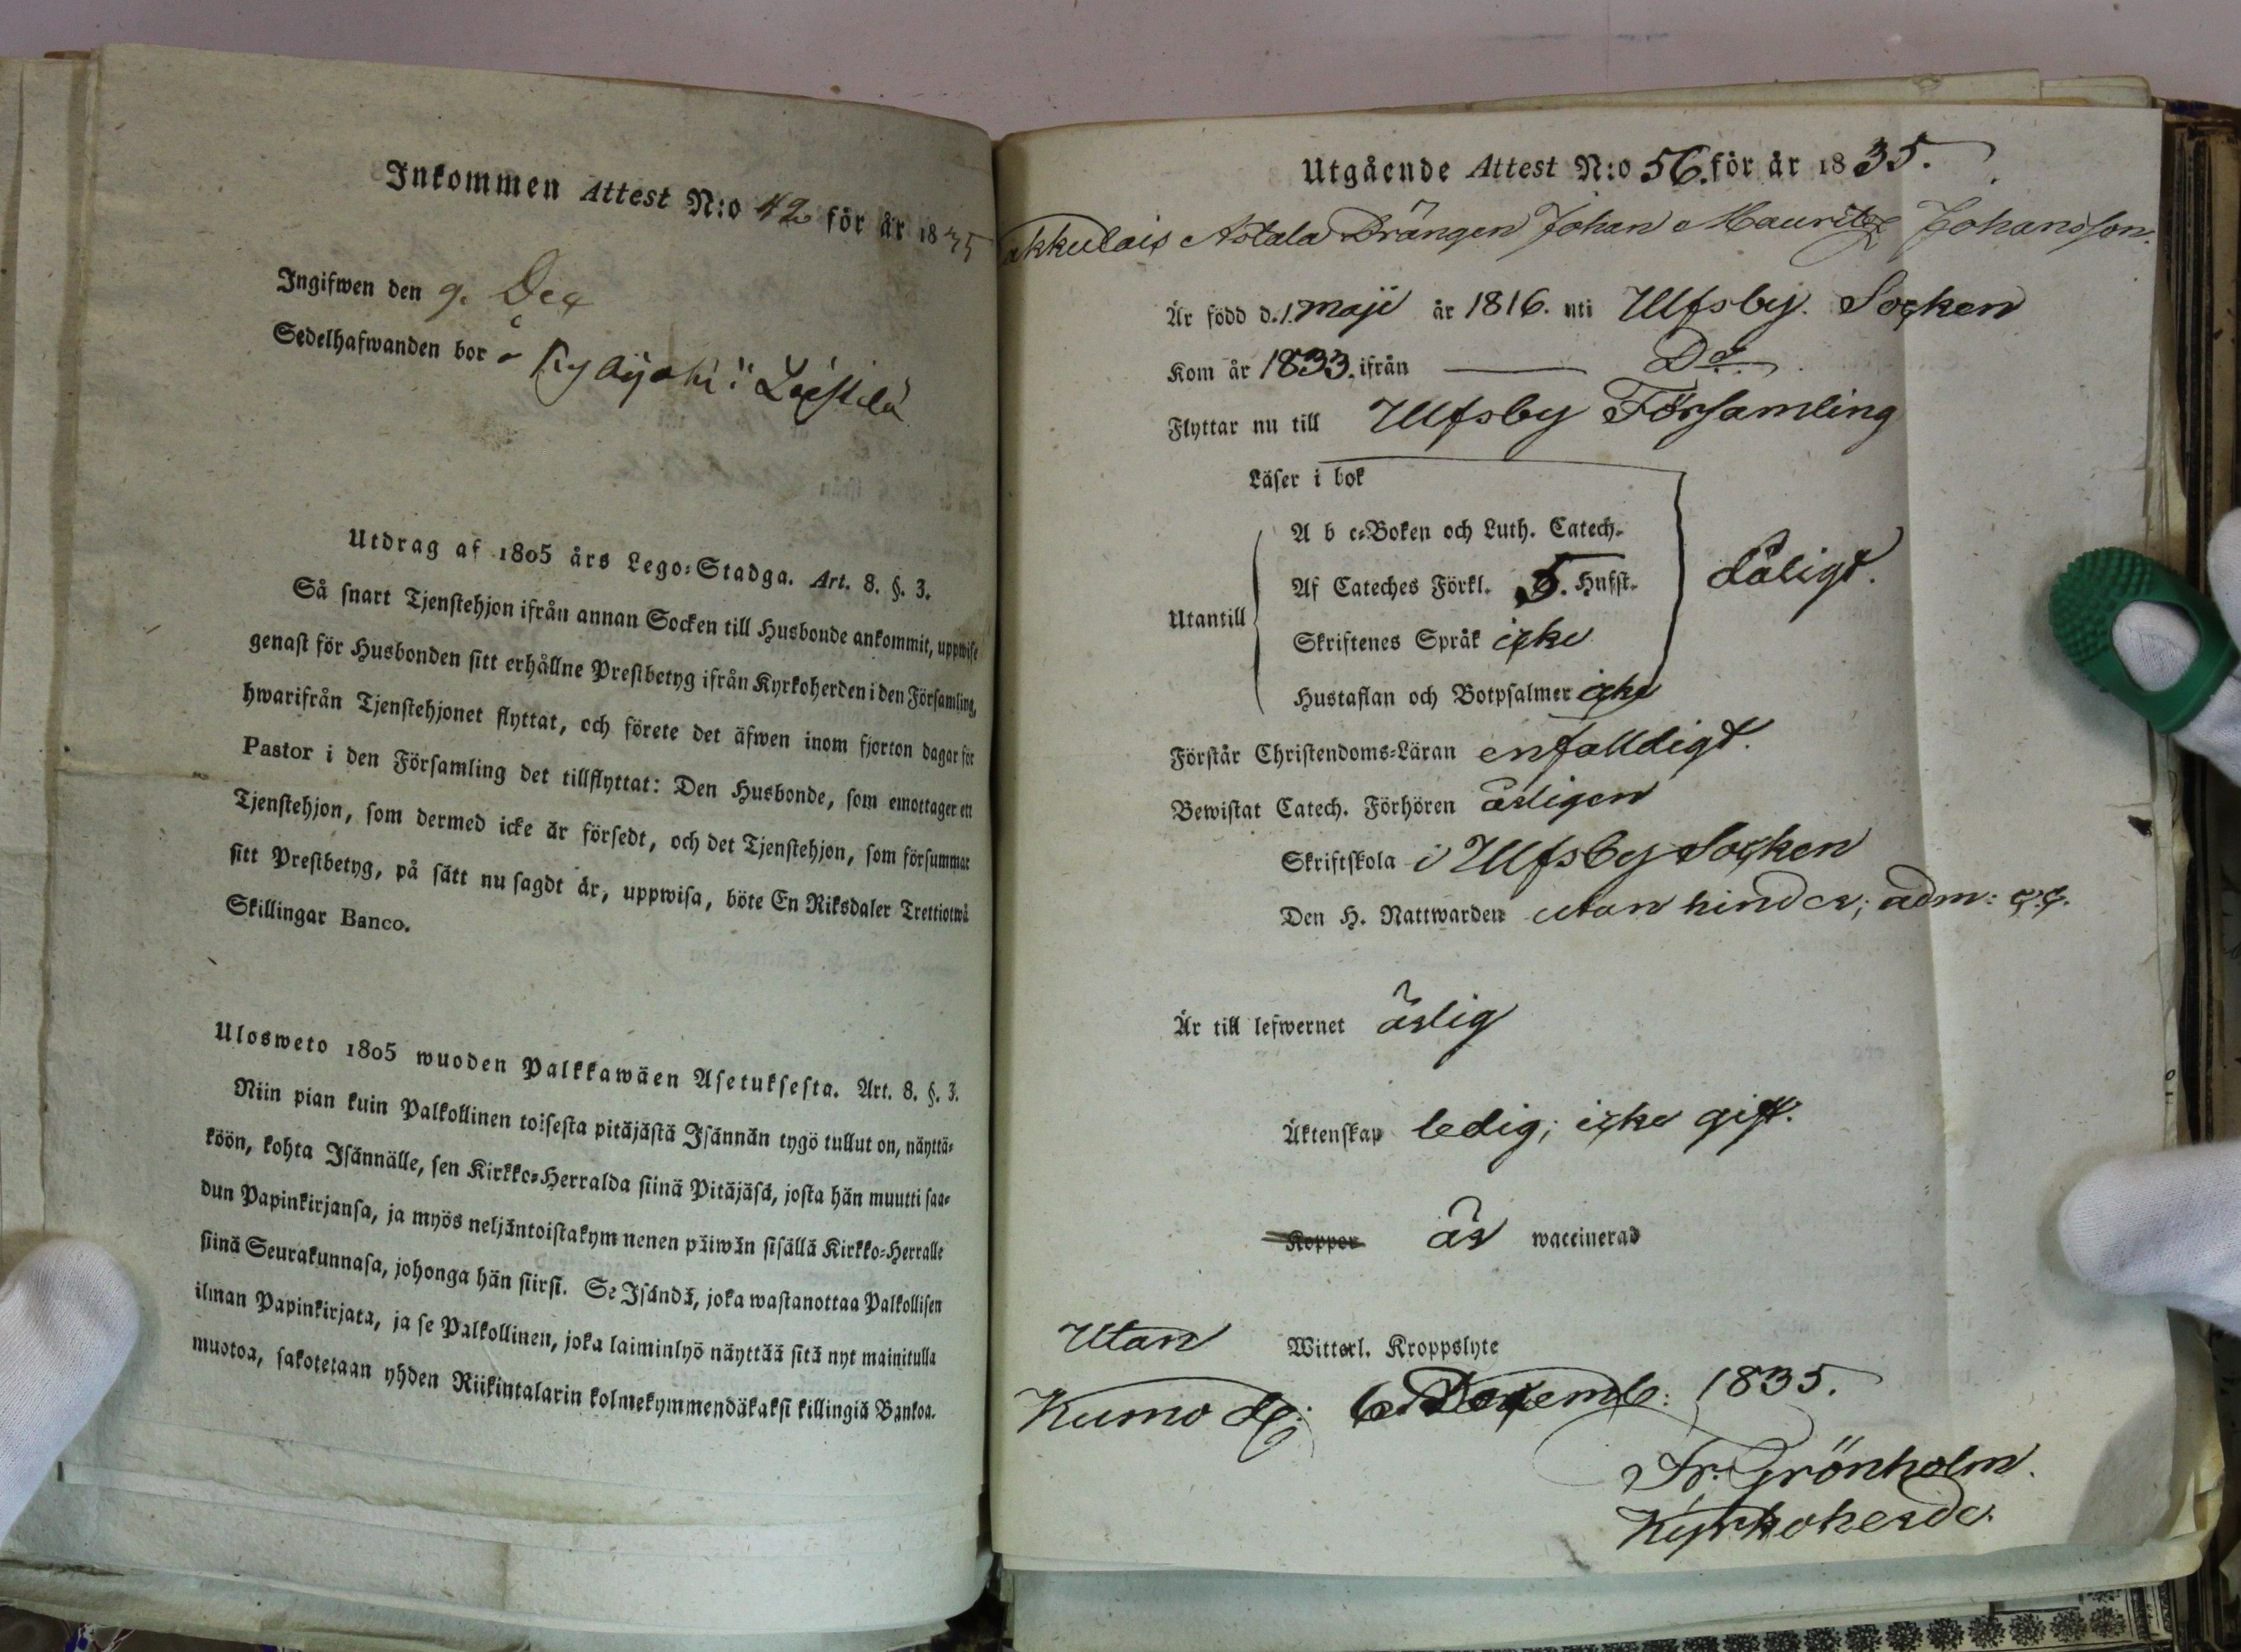 Inkommen Attest N:o 42 för år 1835
Ingifwen den 9. Dec
Sedelhafwanden bor å
Utdrag af 1805 års Lego-Stadga. Art. 8. §. 3.
Så snart Tjenstehjon ifrån annan Socken till Husbonde ankommit, uppwise
genast för Husbonden sitt erhållne Prestbetyg ifrån Kyrkoherden i den Församling,
hwarifrån Tjenstehjonet flyttat, och förete det äfwen inom fjorton dagar för
Pastor i den Församling det tillflyttat: Den Husbonde, som emottager en
Tjenstehjon, som dermed icke är försedt, och det Tjenstehjon, som försummar
sitt Prestbetyg, på sätt nu sagdt är, uppwisa, böte En Riksdaler Trettiotwå
Skillingar Banco.
Ulosweto 1805 wuoden Palkkawäen Asetuksesta. Art. 8. §. 3.
Niin pian kuin Palkollinen toisesta pitäjästä Isännän tygö tullut on, näyttä-
köön, kohta Isännälle, sen Kirkko-Herralda siinä Pitäjäsä, josta hän muutti saa-
dun Papinkirjansa, ja myös neljäntoistakymmenen päiwän sisällä Kirkko-Herralle
siinä Seurakunnasa, johonga hän siirsi. Se Isändä, joka wastanottaa Palkollisen
ilman Papinkirjata, ja se Palkollinen, joka laiminlyö näyttää sitä nyt mainitulla
muotoa, sakotetaan yhden Riikintalarin kolmekymmendäkaksi killingiä Bankoa.
Utgående Attest N:o 56. för år 1835.
Astala Drängen Johan Mauritz Johansson.
Är född d. 1. Maji år 1816. uti Ulfsby Socken
Kom år 1833. ifrån — Do
Flyttar nu till Ulfsby Församling
Läser i bok
A b c-Boken och Luth. Catech.
Af Cateches Förkl. 5. Hufst. dåligt.
Utantill
Skriftenes Språk icke
Hustaflan och Botpsalmer icke
Förstår Christendoms-Läran enfalldigt.
Bewistat Catech. Förhören årligen
Skriftskola i Ulfsby Socken
Den H. Nattwarden utan hinder; adm:
Är till lefwernet ärlig
Äktenskap ledig; icke gift.
Koppor är waccinerad
Utan Witterl. Kroppslyte
Kumo d. 6 Decemb: 1835.
Fr. Grönholm.
Kyrkoherde.